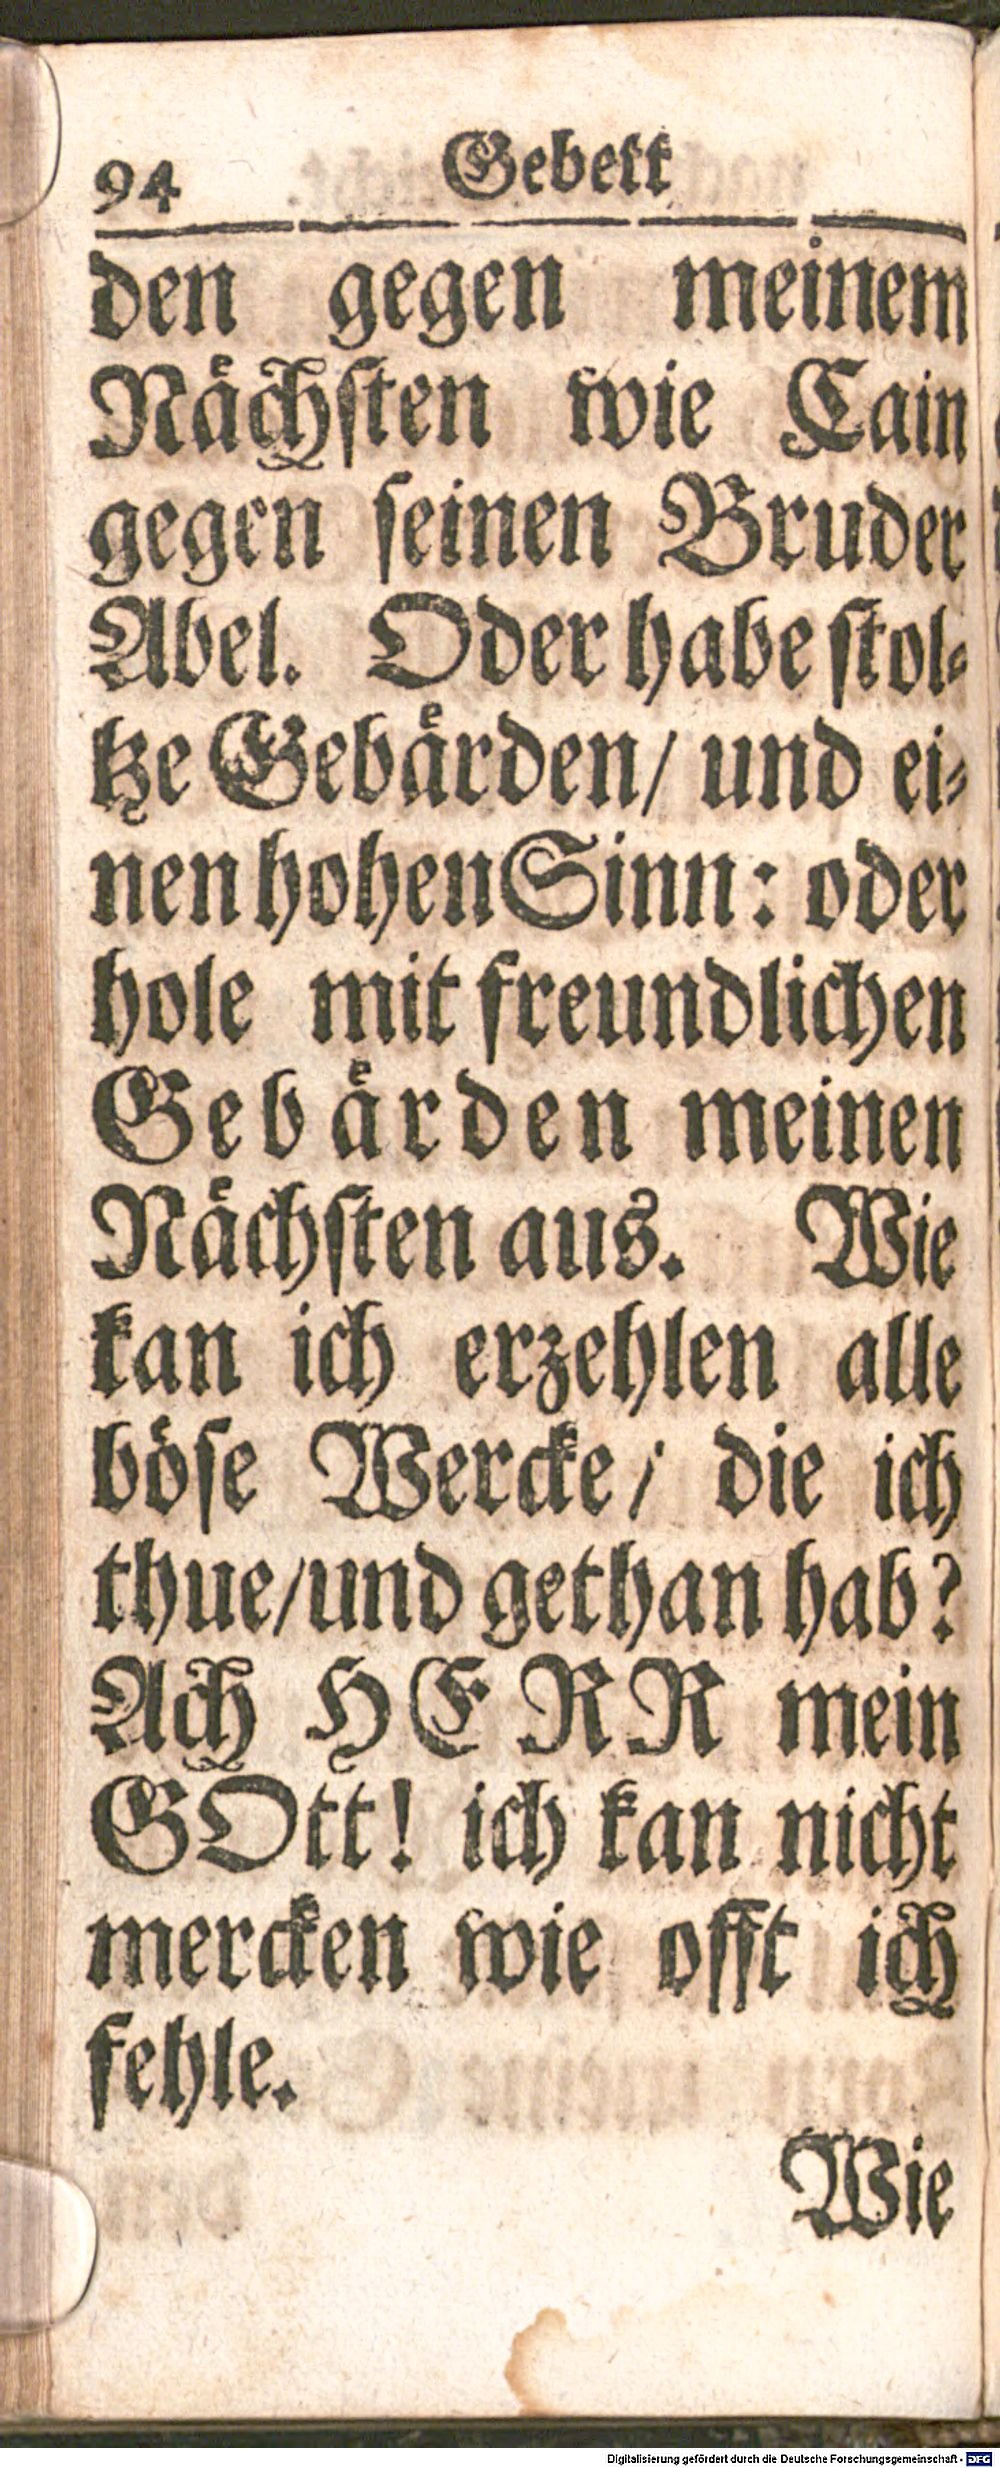 94 Gebett
den gegen meinem
Naͤchſten wie Cain
gegen ſeinen Bruder
Abel. Oder habe ſtol⸗
tze Gebaͤrden/ und ei⸗
nen hohen Sinn: oder
hole mit freundlichen
Gebaͤrden meinen
Naͤchſten aus. Wie
kan ich erzehlen alle
boͤſe Wercke/ die ich
thue/und gethan hab?
Ach HERR mein
GOtt! ich kan nicht
mercken wie offt ich
fehle.
Wie
Digitalisierung gefördert durch die Deutsche Forschungsgemeinschaft - DFG